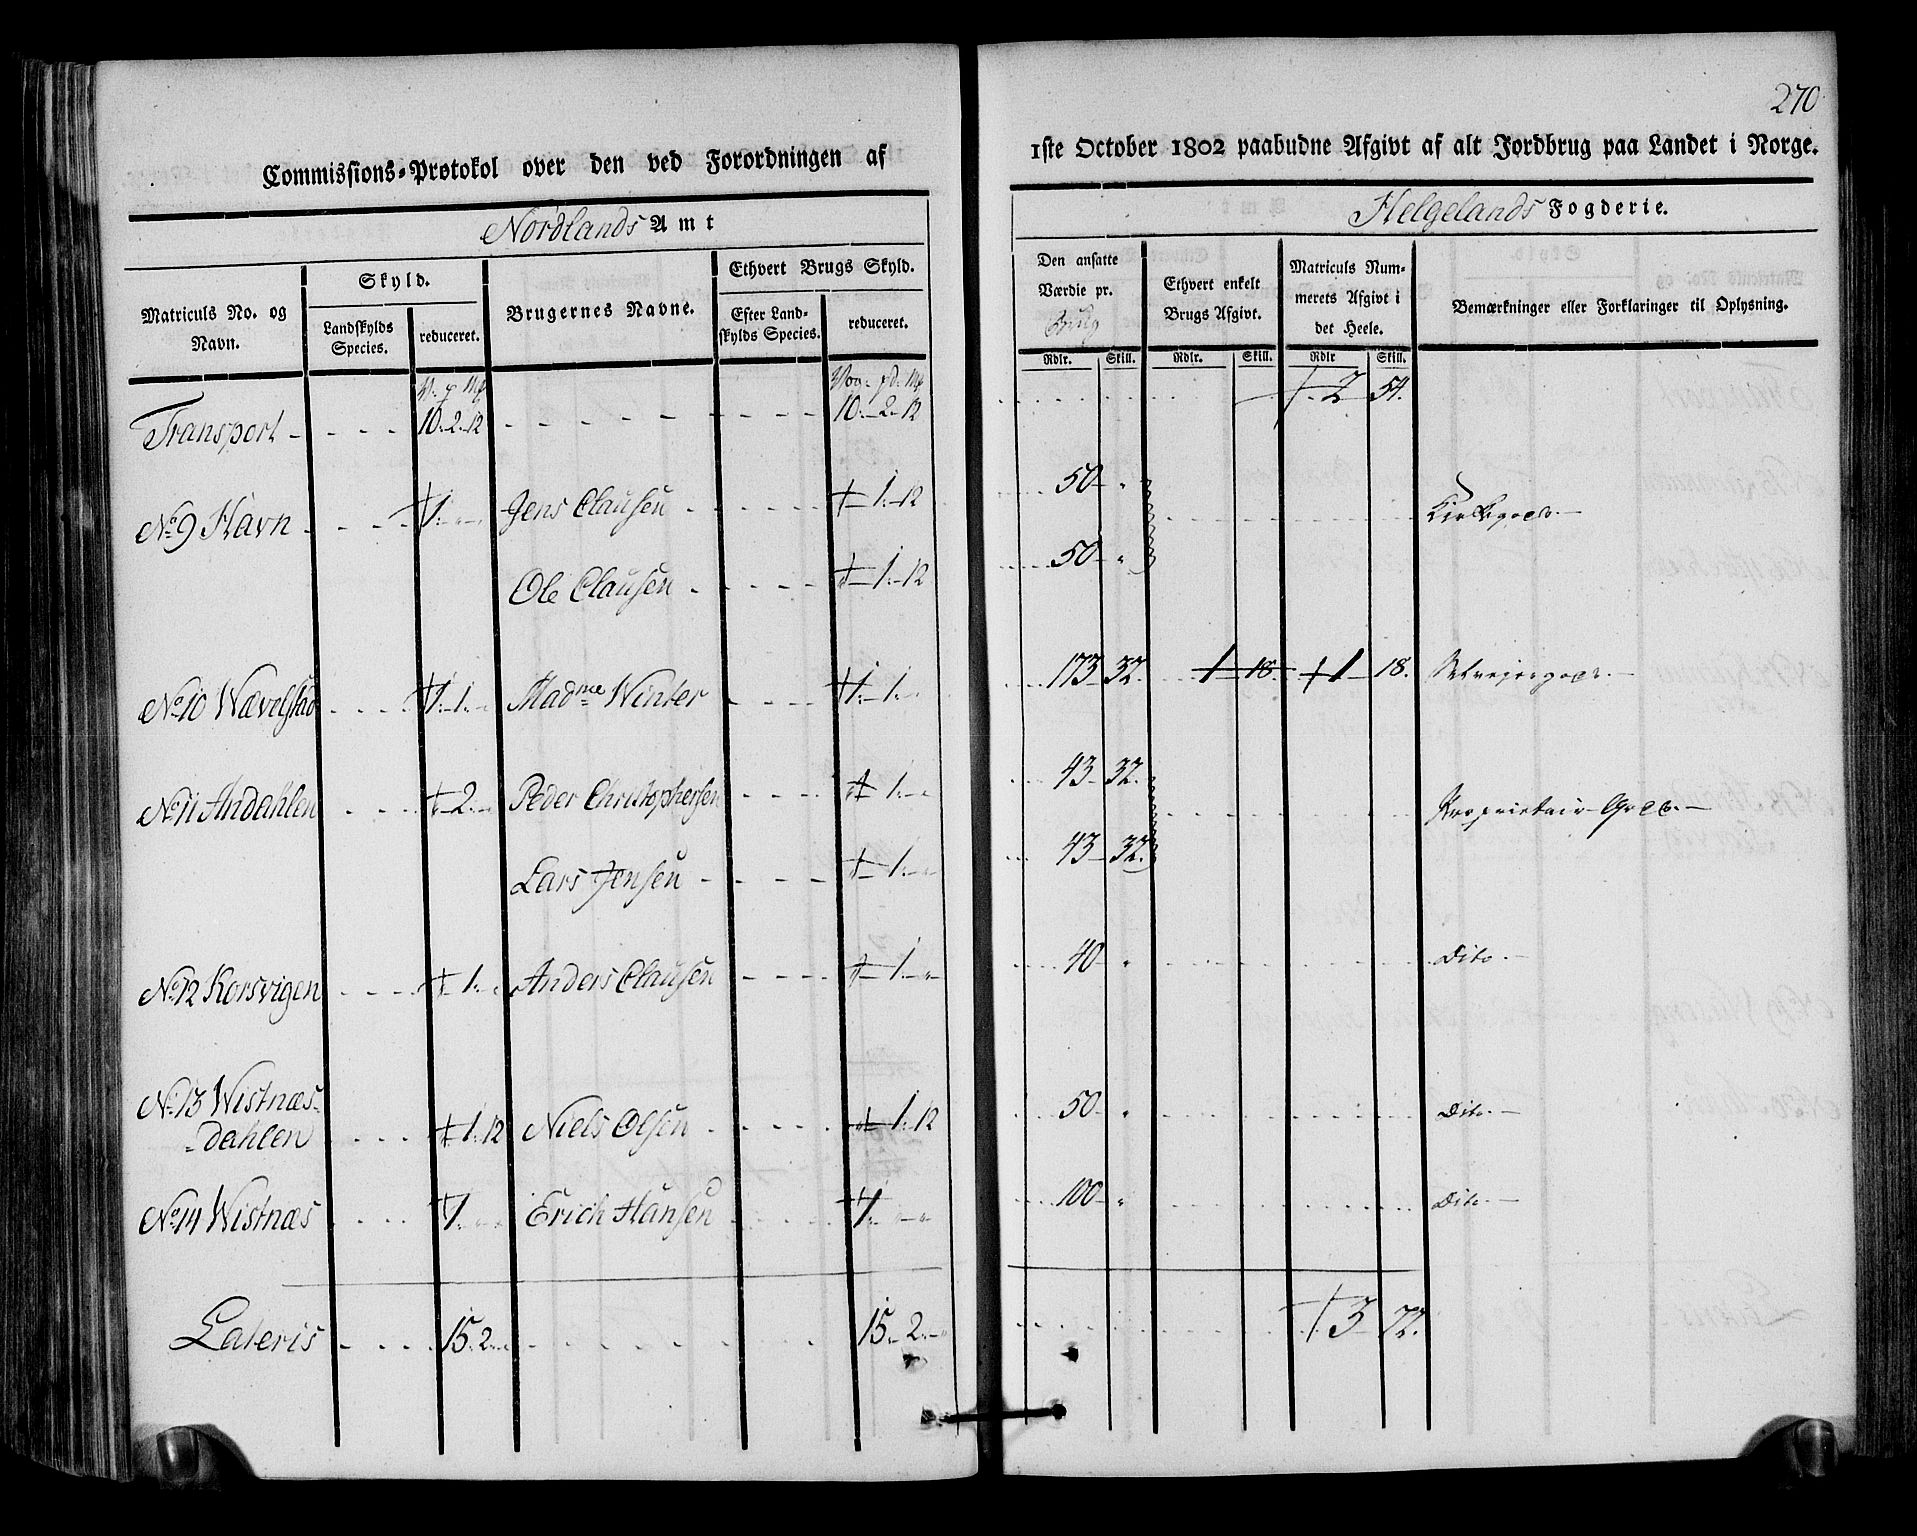 270
Commissions-Protokol over den ved Forordningen af 1ste October 1802 paabudne Afgivt af alt Jordbrug paa Landet i Norge.
Nordlands Amt Helgelands Fogderie.
Matriculs No. og Navn. Skyld. Landskylds Species. reduceret. Brugernes Navne. Ethvert Brugs Skyld. Efter Landskylds Species. reduceret.
Den ansatte Værdie pr. Brug Rdlr. Skill. Ethvert enkelt Brugs Afgivt. Rdlr. Skill. Matriculs Nummerets Afgivt i det Heele. Rdlr Skill. Bemærkninger eller Forklaringer til Oplysning.
Transport 10. 2. 12 10. 2. 12 2 54.
No 9 Havn 1. Jens Clausen 1. 12 50 Kirkegods.
Ole Clausen 1. 12 50
No 10 Wævelstad 1. 1. Madme Winter 1. 1. 173 32. 1 18. 1 18.
No 11 Andahlen 2. Peder Christophersen 1. 43 32. Proprietair Gods.
Lars Jensen 1. 43 32.
No 12 Korsvigen 1. Anders Clausen 1. 40 Dito.
No 13 Wistnæs-
dahlen 1. 12 Niels Olsen 1. 12 50 Dito.
No 14 Wistnæs 1. Erich Hansen 1. 100 Dito.
Lateris 15. 2. 15. 2. 3 72.